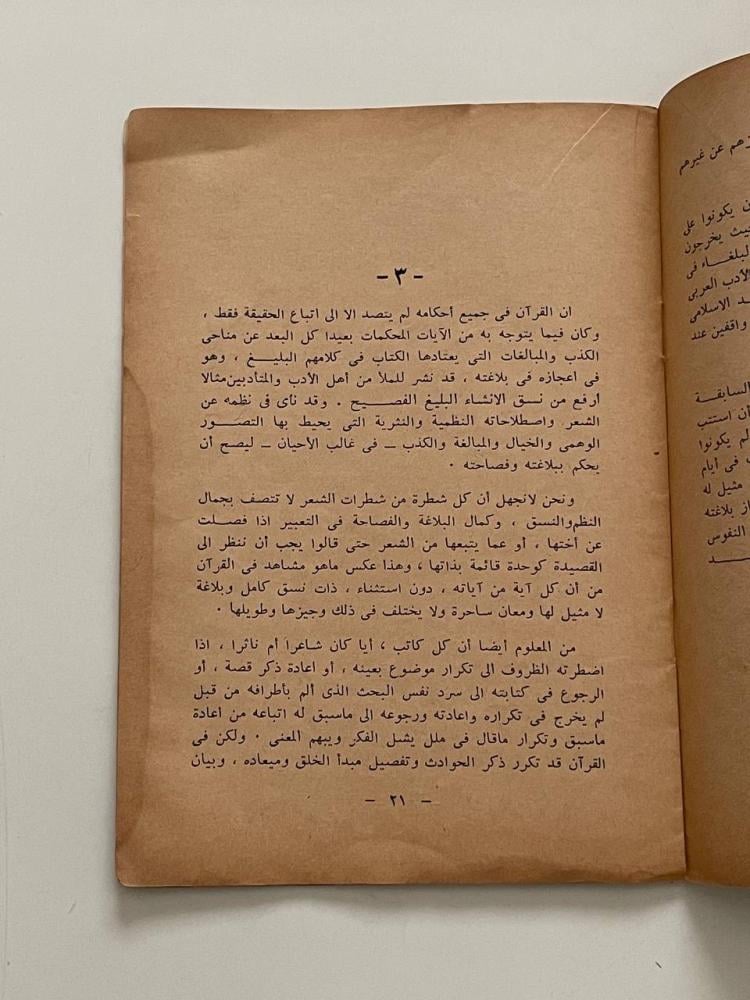 - ٣ -
ان القرآن فى جميع أحكامه لم يتصد الا الى اتباع الحقيقة فقط ،
وكان فيما يتوجه به من الآيات المحكمات بعيدا كل البعد عن مناحى
الكذب والمبالغات التى يعتادها الكتاب فى كلامهم البليــغ ، وهو
فى اعجازه فى بلاغته ، قد نشر للملأ من أهل الأدب والمتأدبين مثالا
أرفع من نسق الانشاء البليغ الفصيح . وقد نأى فى نظمه عن
الشعر واصطلاحاته النظمية والنثرية التى يحيط بها التصــور
الوهمى والخيال والمبالغة والكذب ــ فى غالب الأحيان ــ ليصح أن
يحكم ببلاغته وفصاحته .
ونحن لانجهل أن كل شطرة من شطرات الشعر لا تتصف بجمال
النظم والنسق ، وكمال البلاغة والفصاحة فى التعبير اذا فصــلت
عن أختها ، أو عما يتبعها من الشعر حتى قالوا يجب أن ننظر الى
القصيدة كوحدة قائمة بذاتها ، وهذا عكس ماهو مشاهد فى القرآن
من أن كل آية من آياته ، دون استثناء ، ذات نسق كامل وبلاغة
لا مثيل لها ومعان ساحرة ولا يختلف فى ذلك وجيزها وطويلها .
من المعلوم أيضا أن كل كاتب ، أيا كان شاعرا أم ناثرا ، اذا
اضطرته الظروف الى تكرار موضوع بعينه ، أو اعادة ذكر قصة ، أو
الرجوع فى كتابته الى سرد نفس البحث الذى ألم بأطرافه من قبل
لم يخرج فى تكراره واعادته ورجوعه الى ماسبق له اتباعه من اعادة
ماسبق وتكرار ماقال فى ملل يشل الفكر ويبهم المعنى . ولكن فى
القرآن قد تكرر ذكر الحوادث وتفصيل مبدأ الخلق وميعاده ، وبيان
- ٢١ -
هم عن غيرهم
يكونوا على
يث يخرجون
لبلغــاء فى
الأدب العربى
ـد الاسلامى
واقفين عند
السابقــة
أن استتب
لم يكونوا
فى أيام
مثيل له
از بلاغته
النفوس